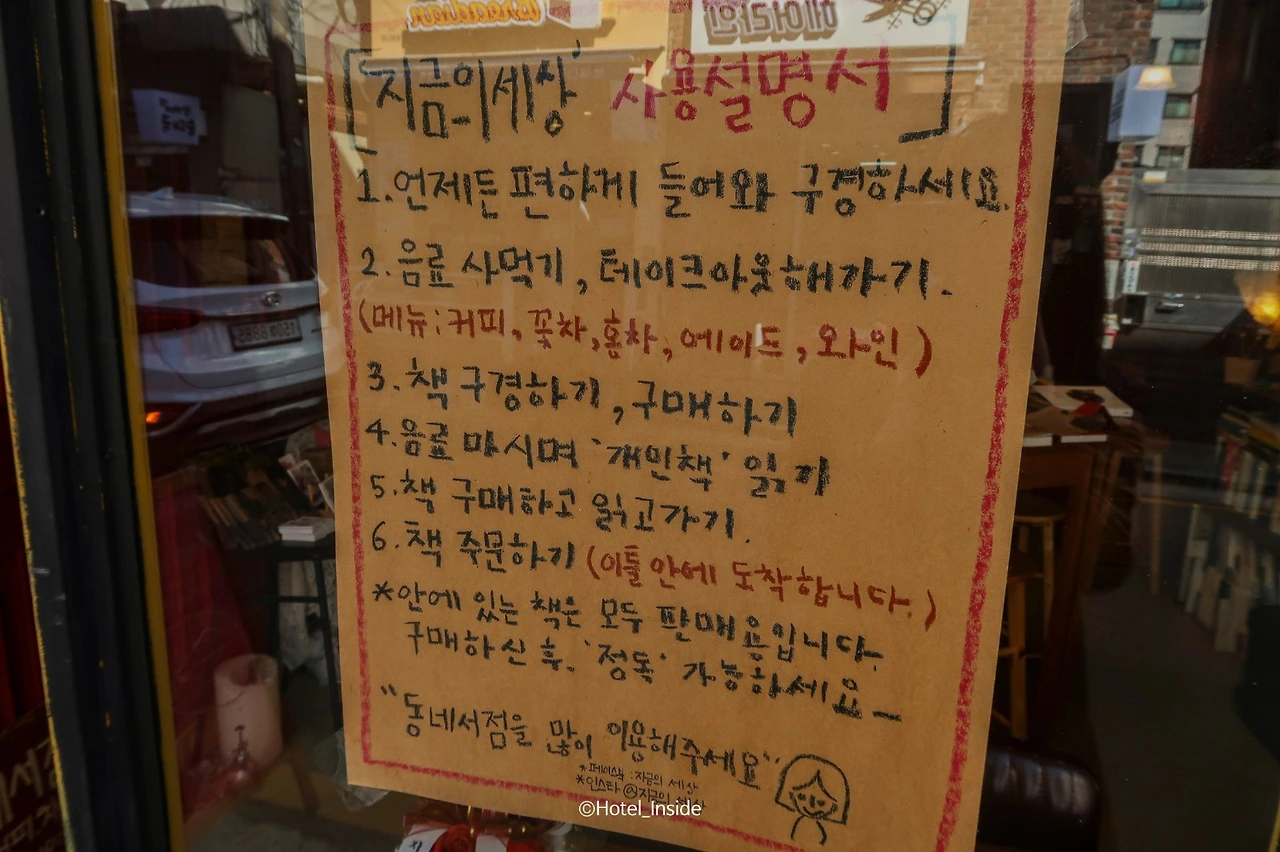 ['지금의세상' 사용설명서]
1. 언제든 편하게 들어와 구경하세요.
2. 음료 사먹기, 테이크아웃해가기.
(메뉴: 커피, 꽃차, 홍차, 에이드, 와인)
3. 책 구경하기, 구매하기
4. 음료 마시며 '개인책' 읽기
5. 책 구매하고 읽고가기.
6. 책 주문하기 (이틀 안에 도착합니다.)
*안에 있는 책은 모두 판매용입니다.
구매하신 후. '정독' 가능하세요_
"동네서점을 많이 이용해주세요"
*페이스북 : 지금의 세상
*인스타 @지금의 세상
©Hotel_Inside